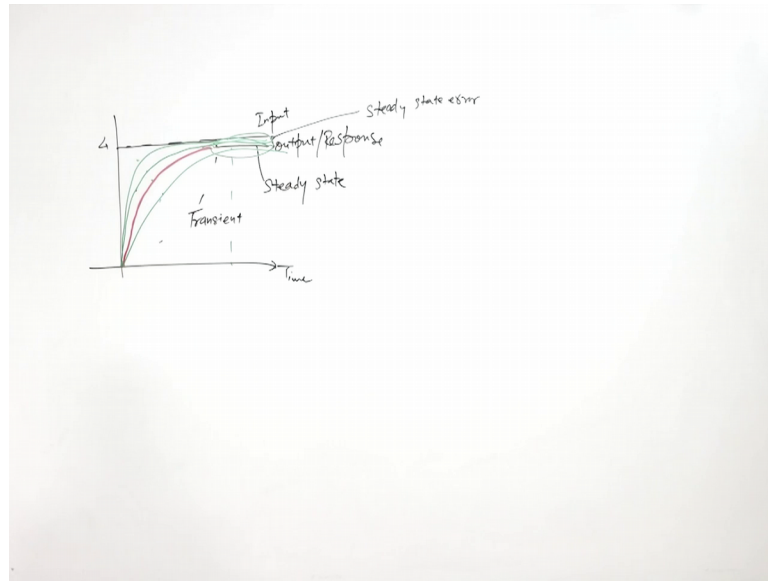 Input
Steady state error
4
output/Response
Steady state
Transient
Time